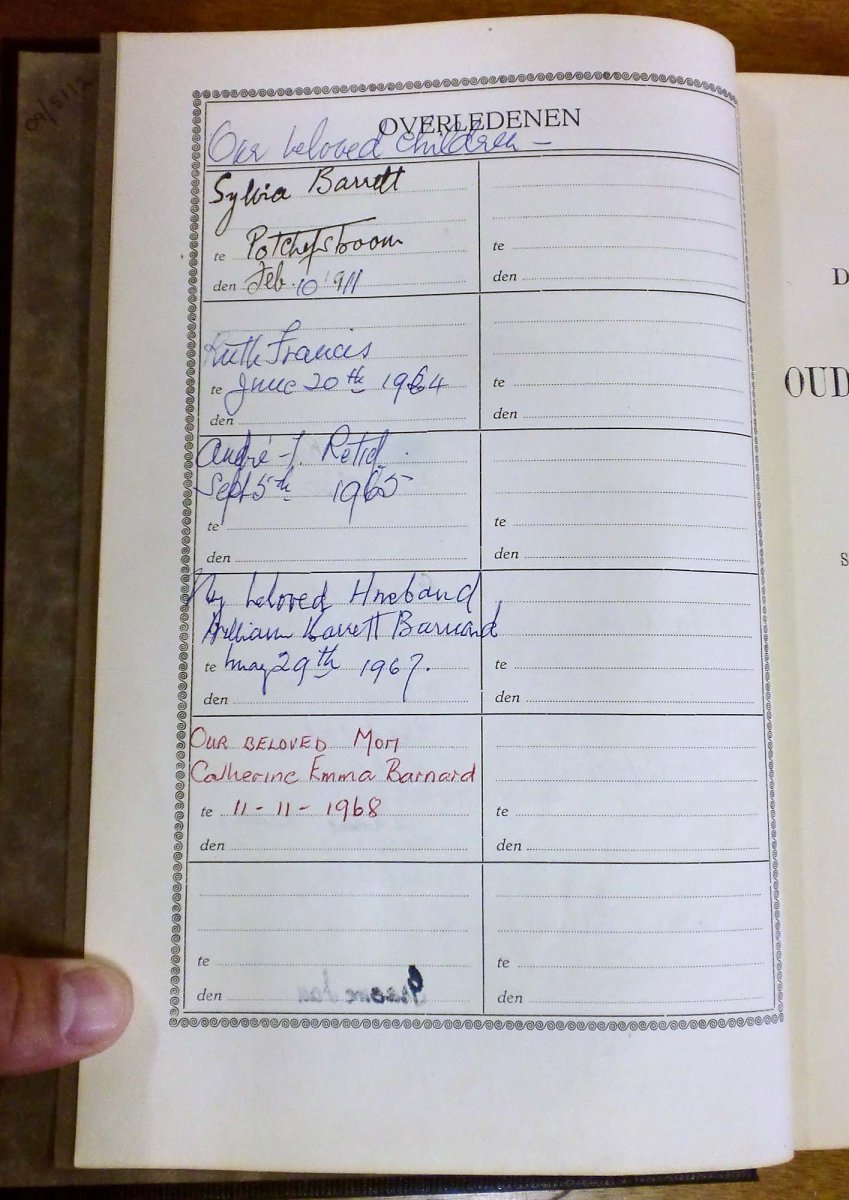 OVERLEDENEN
Our beloved children –
Sylvia Barrett
te Potchefstroom
den Feb. 10 1911
te
den
Ruth Francis
te June 20th 1964
den
te
den
André J. Retid.
Sept 5th 1965
te
den
te
den
My beloved Husband
William Barrett Barnard
te May 29th 1967.
den
te
den
OUR BELOVED MOM
Catherine Emma Barnard
te 11-11-1968
den
te
den
te
den
te
den
D
OUD
S